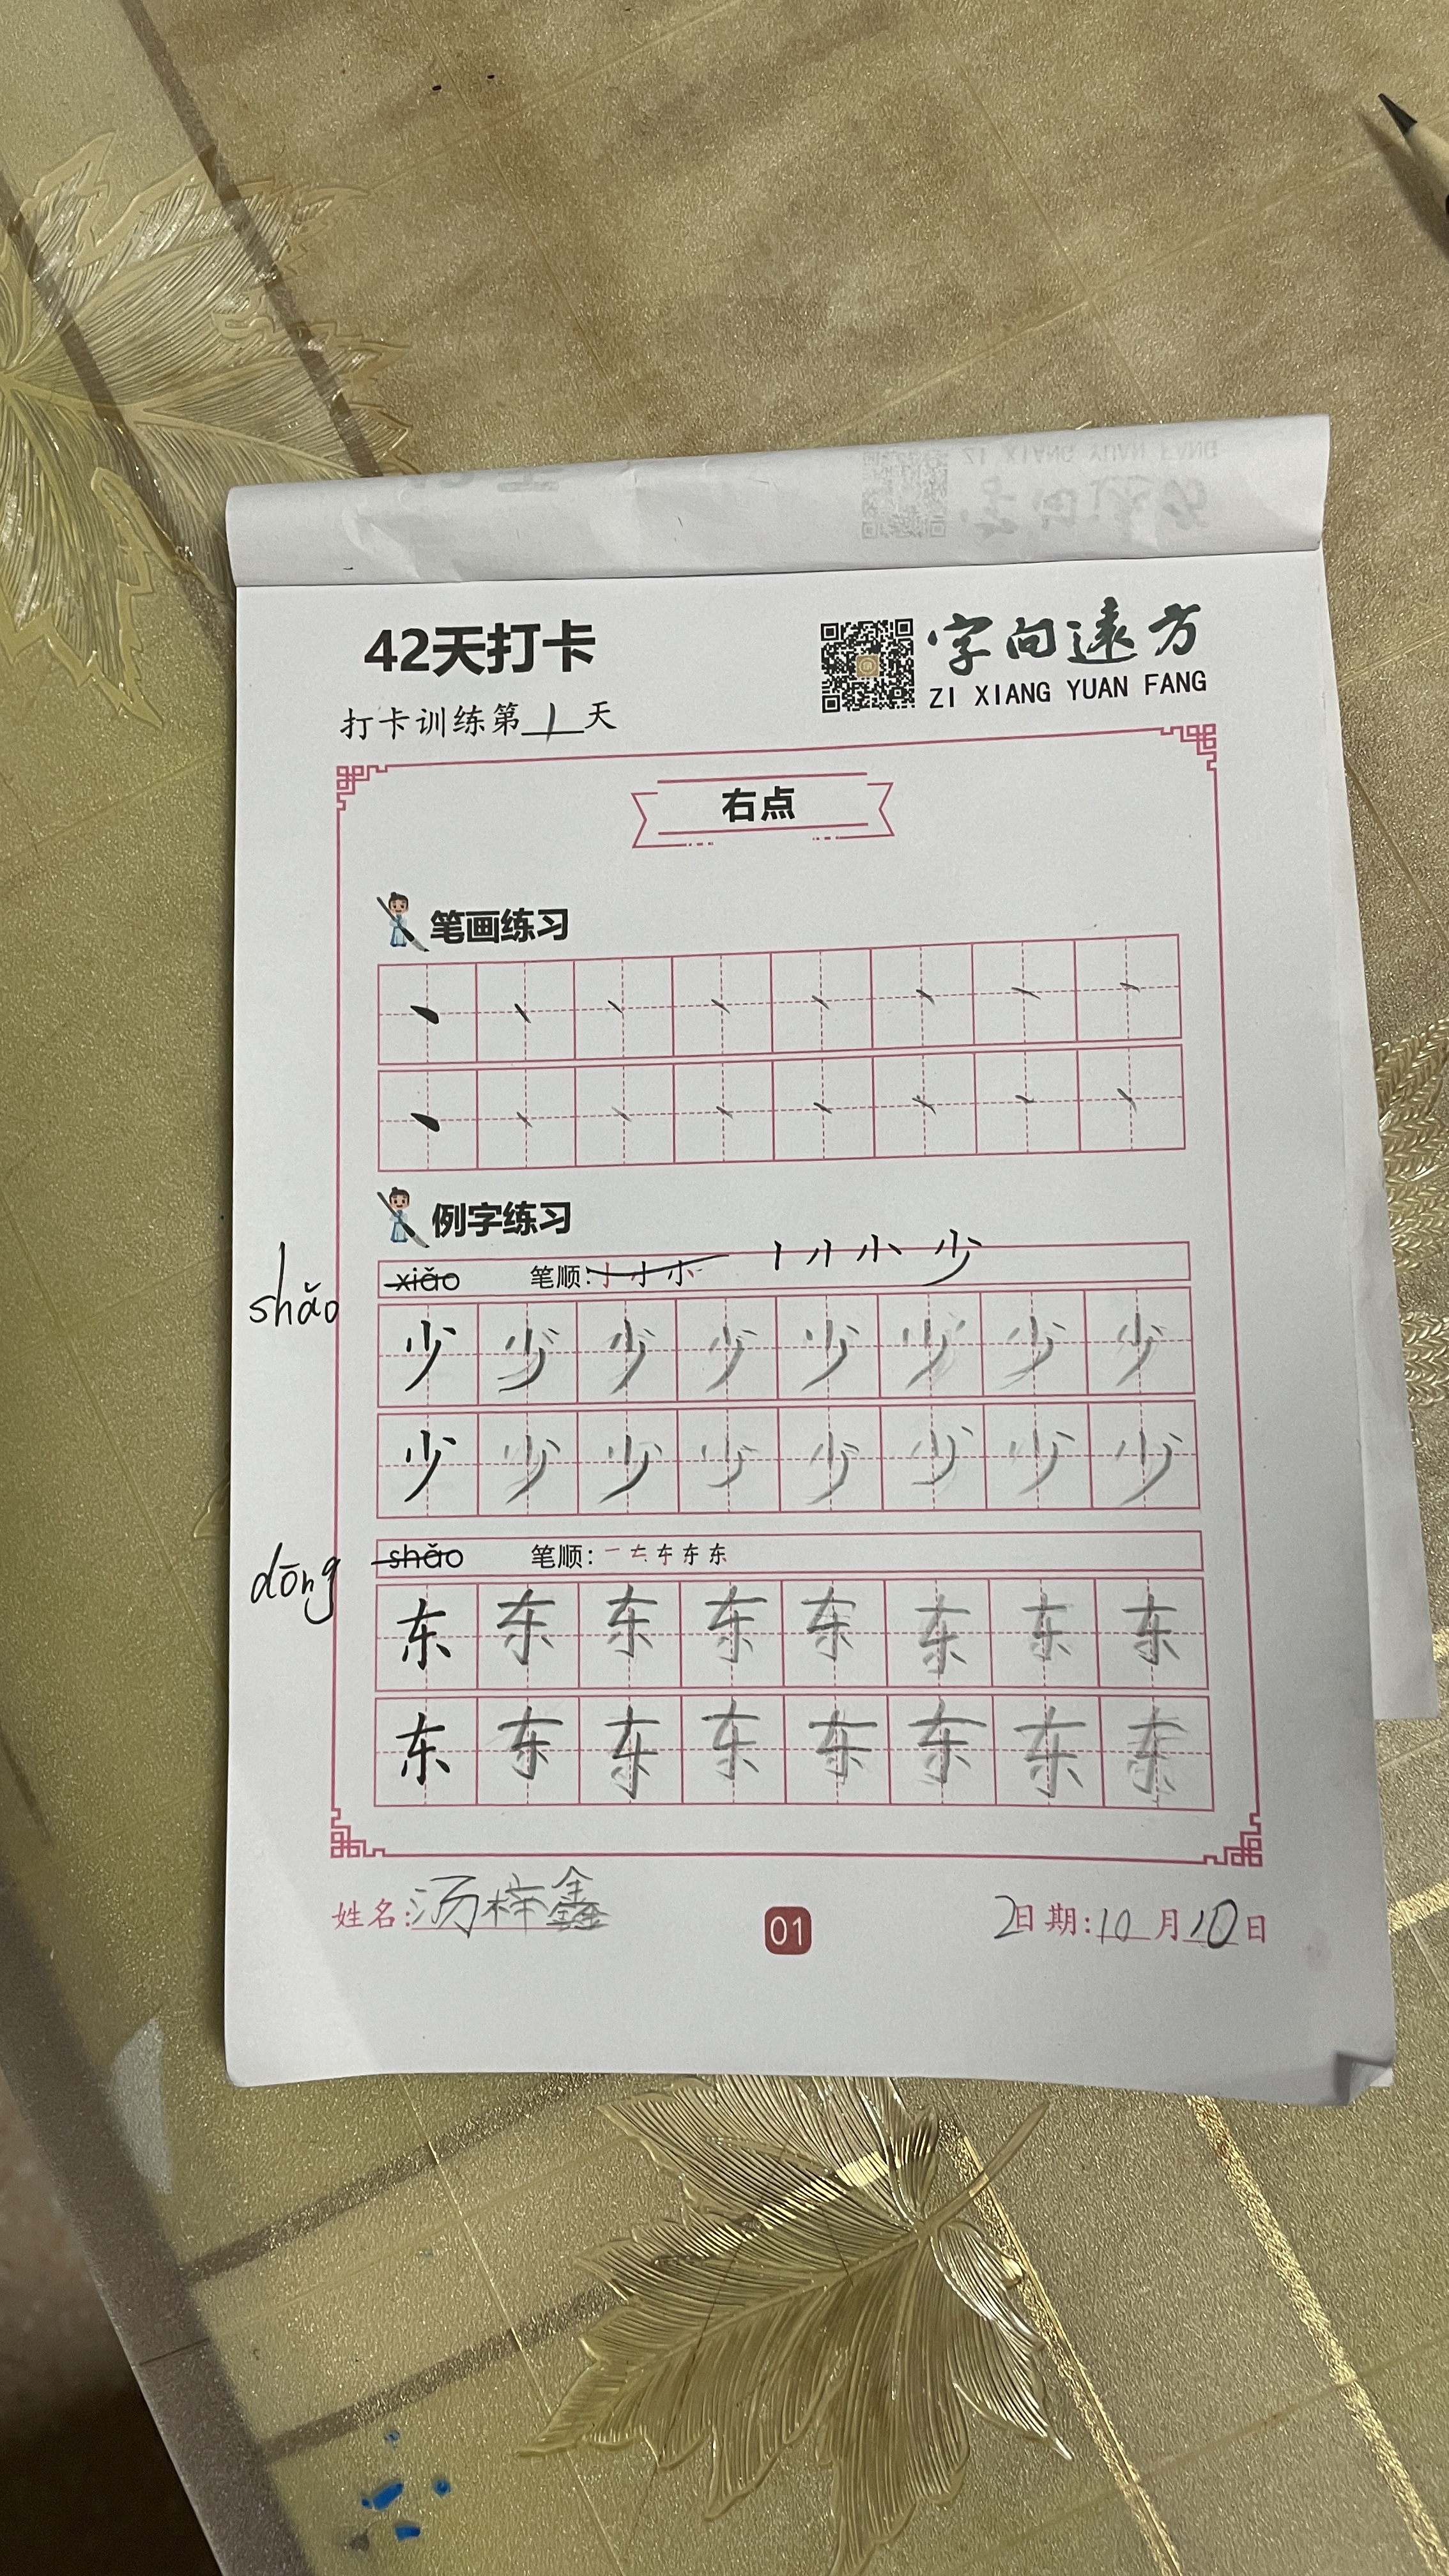 42天打卡
字向远方
ZI XIANG YUAN FANG
打卡训练第1天
右点
笔画练习
例字练习
shǎo
xiǎo 笔顺: 小 小 小 少
少 少 少 少 少 少 少 少
少 少 少 少 少 少 少 少
dōng
shǎo 笔顺: 东
东 东 东 东 东 东 东 东
东 东 东 东 东 东 东 东
姓名: 汤梓鑫
01
2日期: 10月10日